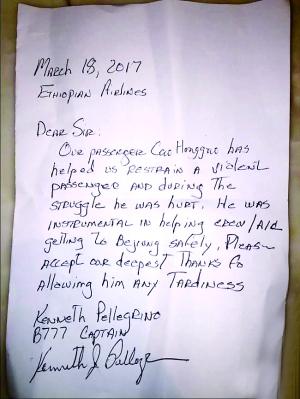 March 18, 2017
Ethiopian Airlines
Dear Sir:
Our passenger Cao Hongguo has
helped us restrain a violent
passenger and during the
struggle he was hurt. He was
instrumental in helping crew/Aid
getting to Bejing safely. Please
accept our deepest Thanks fo
Allowing him any Tardiness
Kenneth Pellegrino
B777 Captain
Kenneth J